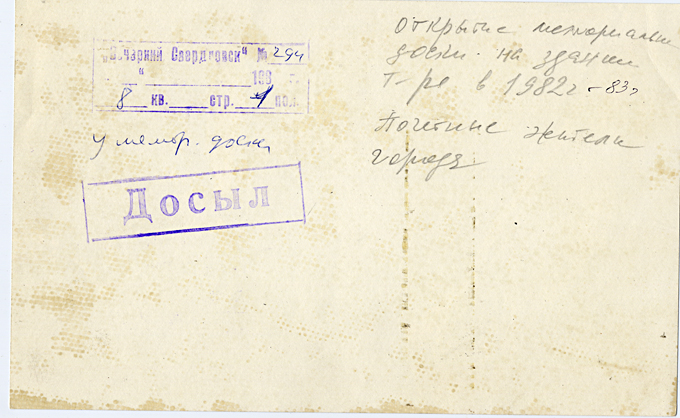 „Вечерний Свердловск“ № 294
„ “ 198 г.
8 кв. стр. 1 пол.
у мемор. доски
Досыл
Открытие мемориальн
доски на здании
т-ра в 1982г - 83г
Почетные жители
города